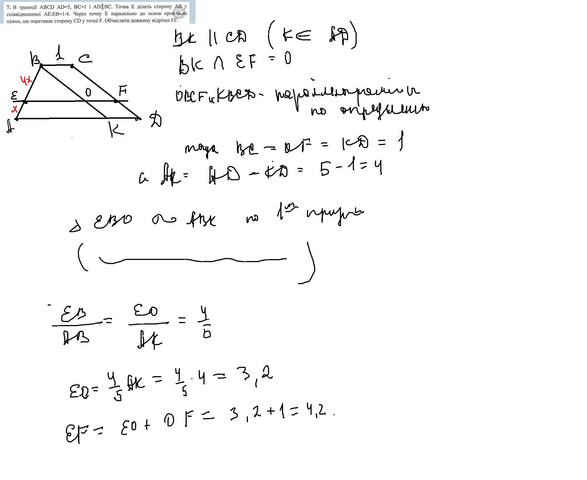 7. В трапеції ABCD AD=5, BC=1 і AD∥BC. Точка E ділить сторону AB у
співвідношенні AE:EB=1:4. Через точку E паралельно до основ проведено
пряма, що перетинає сторону CD у точці F. Обчислити довжину відрізка EF.
B 1 C
4x
E O F
x
A K D
BK ∥ CD (K ∈ AD)
BK ∩ EF = O
OBCF и KBCD - параллелограммы
по определению
тогда BC = OF = KD = 1
а AK = AD - KD = 5 - 1 = 4
△ EBO ∾ ABK по 1му признаку
( )
EB/AB = EO/AK = 4/5
EO = 4/5 AK = 4/5 · 4 = 3,2
EF = EO + OF = 3,2 + 1 = 4,2.